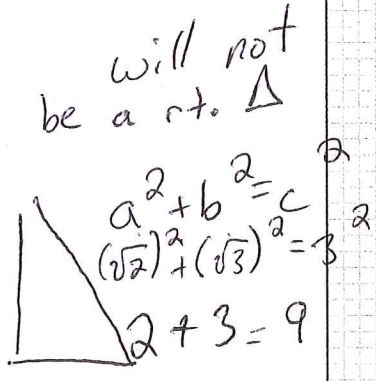 will not
be a rt. Δ
a² + b² = c²
(√2)² + (√3)² = 3²
2 + 3 = 9